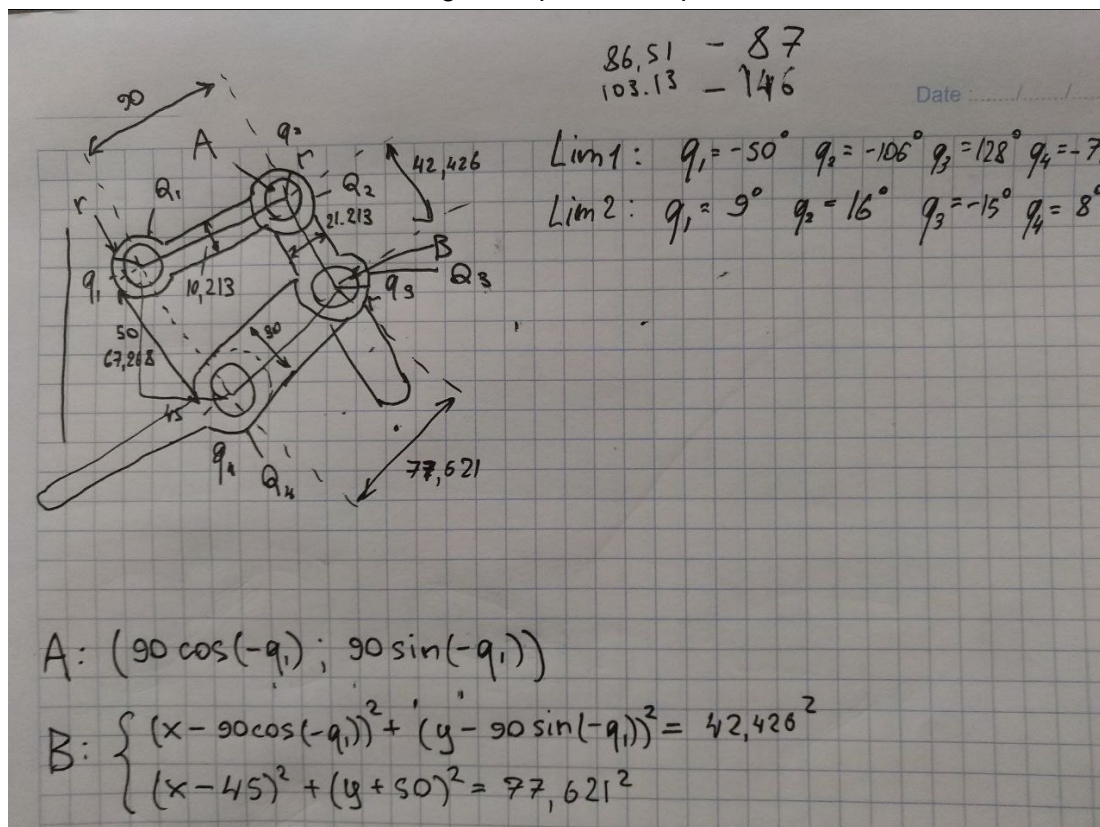 86,51 - 87
103.13 - 146
Date :....../....../....
90
A
q₂
r
Q₁
r
Q₂
42,426
21.213
B
q₁
10,213
q₃
Q₃
r
50
67,268
45
q₄
Q₄
77,621
Lim1: q₁ = -50° q₂ = -106° q₃ = 128° q₄ = -7
Lim2: q₁ = 9° q₂ = 16° q₃ = -15° q₄ = 8°
A: (90 cos(-q₁) ; 90 sin(-q₁))
B: { (x - 90cos(-q₁))² + (y - 90 sin(-q₁))² = 42,426²
(x - 45)² + (y + 50)² = 77,621²